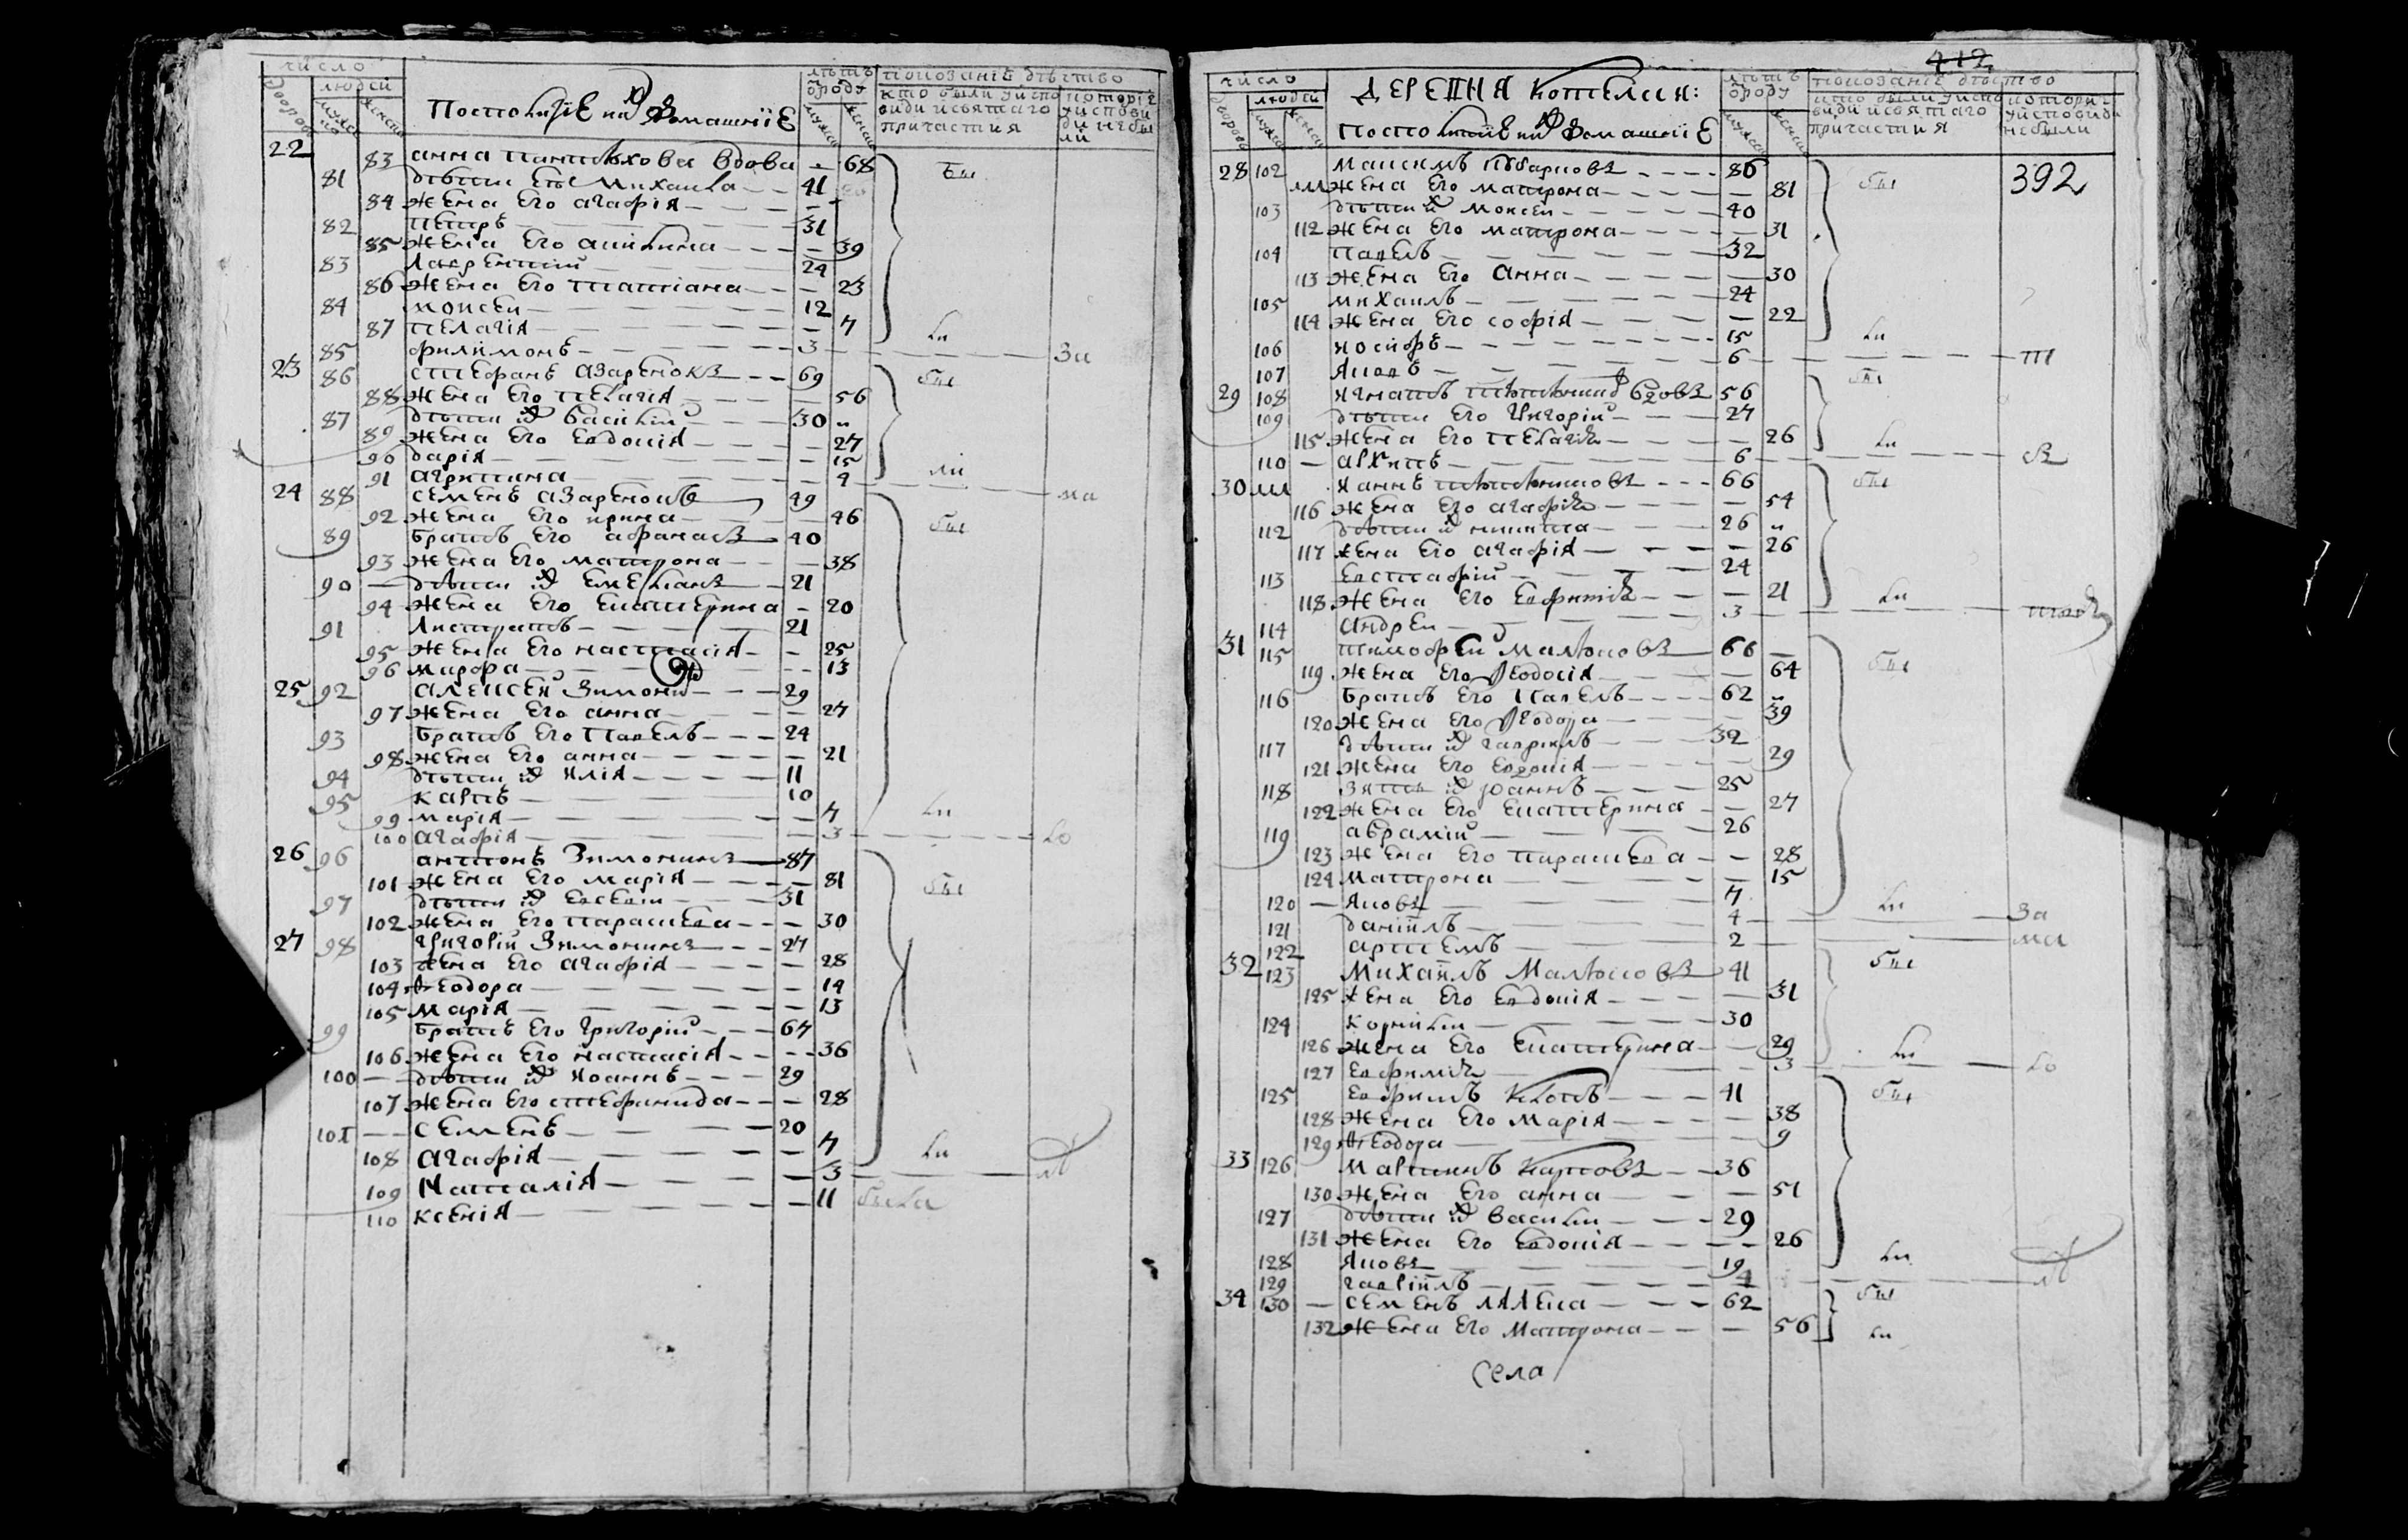 число
людей
Посполитіе ихъ домашніе
лѣтъ ѿ роду
показаніе дѣйство
кто были у исповиди и святаго причастия
которіе у исповиди не были
22 83 анна вдова - 68 бы
81 дѣти ея Михаила 41
84 жена его агафія
82 петръ 31
85 жена его акилина 39
83 лаврентий 24
86 жена его татіана 23
84 моисеи 12
87 пелагія 7 ли
85 филимонъ 3 за
23 86 стефанъ азаренокъ 69 бы
88 жена его пелагія 56
87 дѣти их василий 30
89 жена его евдокія 27
90 дарія 15
91 агрипина 9 ли
24 88 семенъ азаренокъ 49 ма
92 жена его ирина 46 бы
89 братъ его афанасъ 40
93 жена его матрона 38
90 дѣти их емелианъ 21
94 жена его екатерина 20
91 листратъ 21
95 жена его настасія 25
96 марфа 13
25 92 алексей зимонин 29
97 жена его анна 27
93 братъ его павелъ 24
98 жена его анна 21
94 дѣти их илія 11
95 карпъ 10
99 марія 7 ли
100 агафія 3 ло
26 96 антонъ зимонинъ 87
101 жена его марія 81 бы
97 дѣти их евсеи 31
102 жена его парасковa 30
27 98 григорій зимонинъ 27
103 жена его агафія 28
104 ѳеодора 14
105 марія 13
99 братъ его григорій 67
106 жена его настасія 36
100 дѣти их иоаннъ 29
107 жена его стефанида 28
101 семенъ 20
108 агафія 7 ли
109 Наталія 3
110 ксенія 11 была
412
число
людей
ДЕРЕВНЯ Котелия:
Посполитіе ихъ домашніе
лѣтъ ѿ роду
показаніе дѣйство
кто были у исповиди и святаго причастия
которіе у исповиди не были
28 102 максимъ 86 бы 392
111 жена его матрона 81
103 дѣти их моисеи 40
112 жена его матрона 31
104 павелъ 32
113 жена его анна 30
105 михаилъ 24
114 жена его софія 22
106 иосифъ 15 ли
107 яковъ 6
29 108 игнатъ 56 бы
109 дѣти его григорій 27
115 жена его пелагія 26 ли
110 архипъ 6
30 111 ианнъ 66 бы
116 жена его агафія 54
112 дѣти их никита 26
117 жена его агафія 26
113 евстафій 24
118 жена его евфимія 21 ли
114 андреи 3
31 115 тимофей малюковъ 66 бы
119 жена его ѳеодосія 64
116 братъ его павелъ 62
120 жена его ѳеодора 39
117 дѣти их гавриилъ 32
121 жена его евдокія 29
118 зять их иоаннъ 25
122 жена его екатерина 27
119 аврамій 26
123 жена его парасковa 28
124 матрона 15
120 яковъ 7 ли
121 даніилъ 4 за
122 артемъ 2 ма
32 123 Михаилъ Малюковъ 41 бы
125 жена его евдокія 31
124 корнилий 30
126 жена его екатерина 29 ли
127 евфимія 3 ло
125 ефримъ 41 бы
128 жена его марія 38
129 ѳеодора 9
33 126 мартинъ карповъ 36
130 жена его анна 51
127 дѣти их василий 29
131 жена его евдокія 26
128 яковъ 19 ли
129 гавріилъ 4
34 130 семенъ лялека 62 бы
132 жена его матрона 56 ли
села